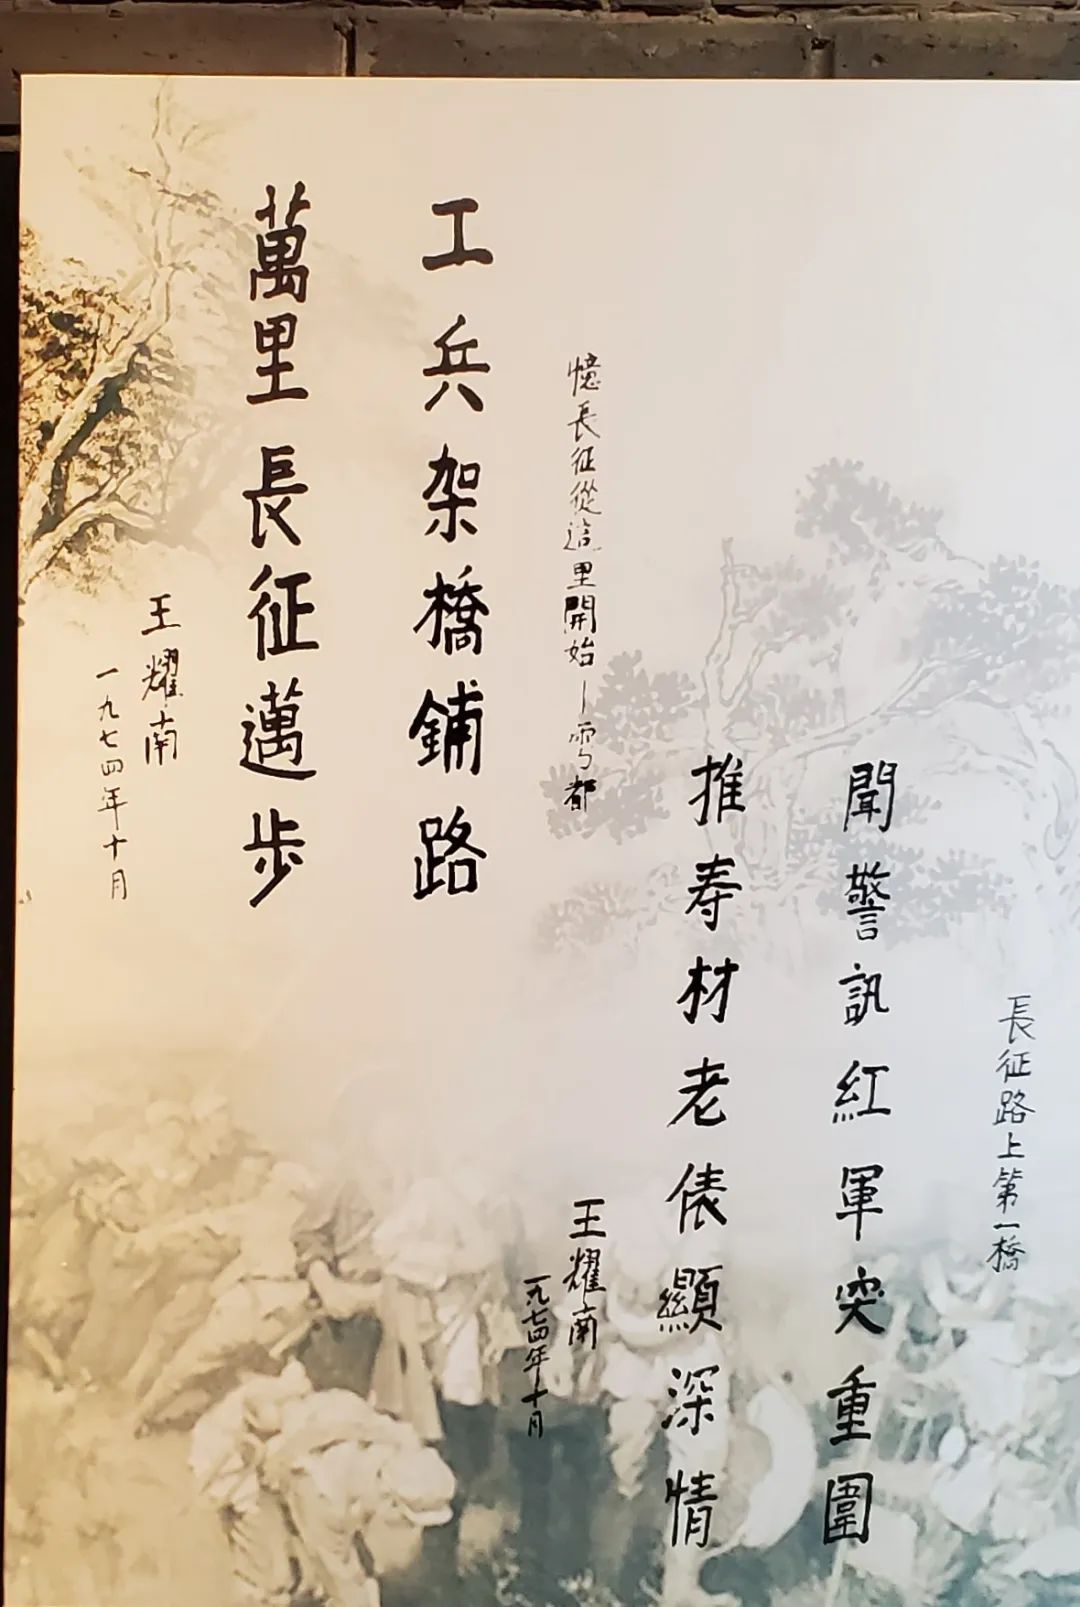 長征路上第一橋
聞警訊紅軍突重圍
推寿材老俵顯深情
王耀南
一九七四年十月
憶長征從這里開始—雩都
工兵架橋鋪路
萬里長征邁步
王耀南
一九七四年十月